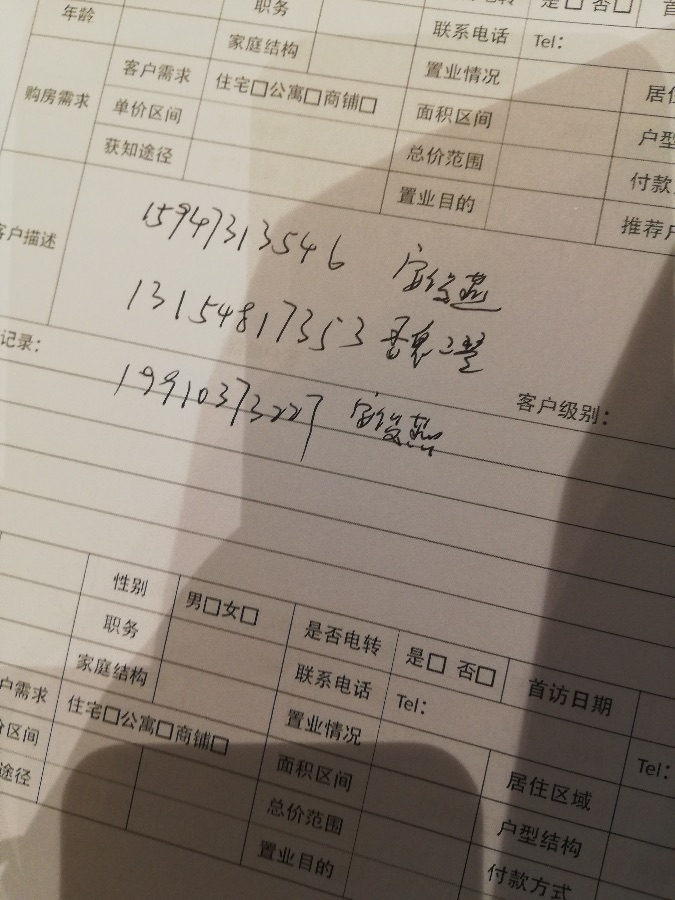 年龄 职务 是否电转 是□ 否□ 首
家庭结构 联系电话 Tel：
购房需求 客户需求 住宅□公寓□商铺□ 置业情况 居住
单价区间 面积区间 户型
获知途径 总价范围 付款
置业目的 推荐
客户描述
15947313546
13154817353
记录：
19910373227
客户级别：
性别 男□女□ 是否电转 是□ 否□ 首访日期
职务 联系电话 Tel： Tel：
家庭结构 置业情况 居住区域
户需求 住宅□公寓□商铺□ 面积区间 户型结构
价区间 总价范围 付款方式
途径 置业目的